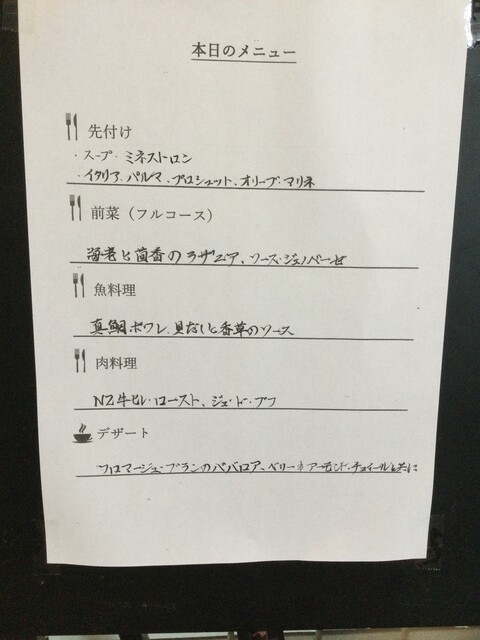 本日のメニュー
先付け
・スープ・ミネストロン
・イタリア、パルマ、プロシュット、オリーブ・マリネ
前菜（フルコース）
海老と茴香のラザニア、ソース・ジェノベーゼ
魚料理
真鯛ポワレ、貝だしと香草のソース
肉料理
NZ牛ヒレ・ロースト、ジュ・ド・ブフ
デザート
フロマージュ・ブランのババロア、ベリーとアーモンド・チュイールと共に